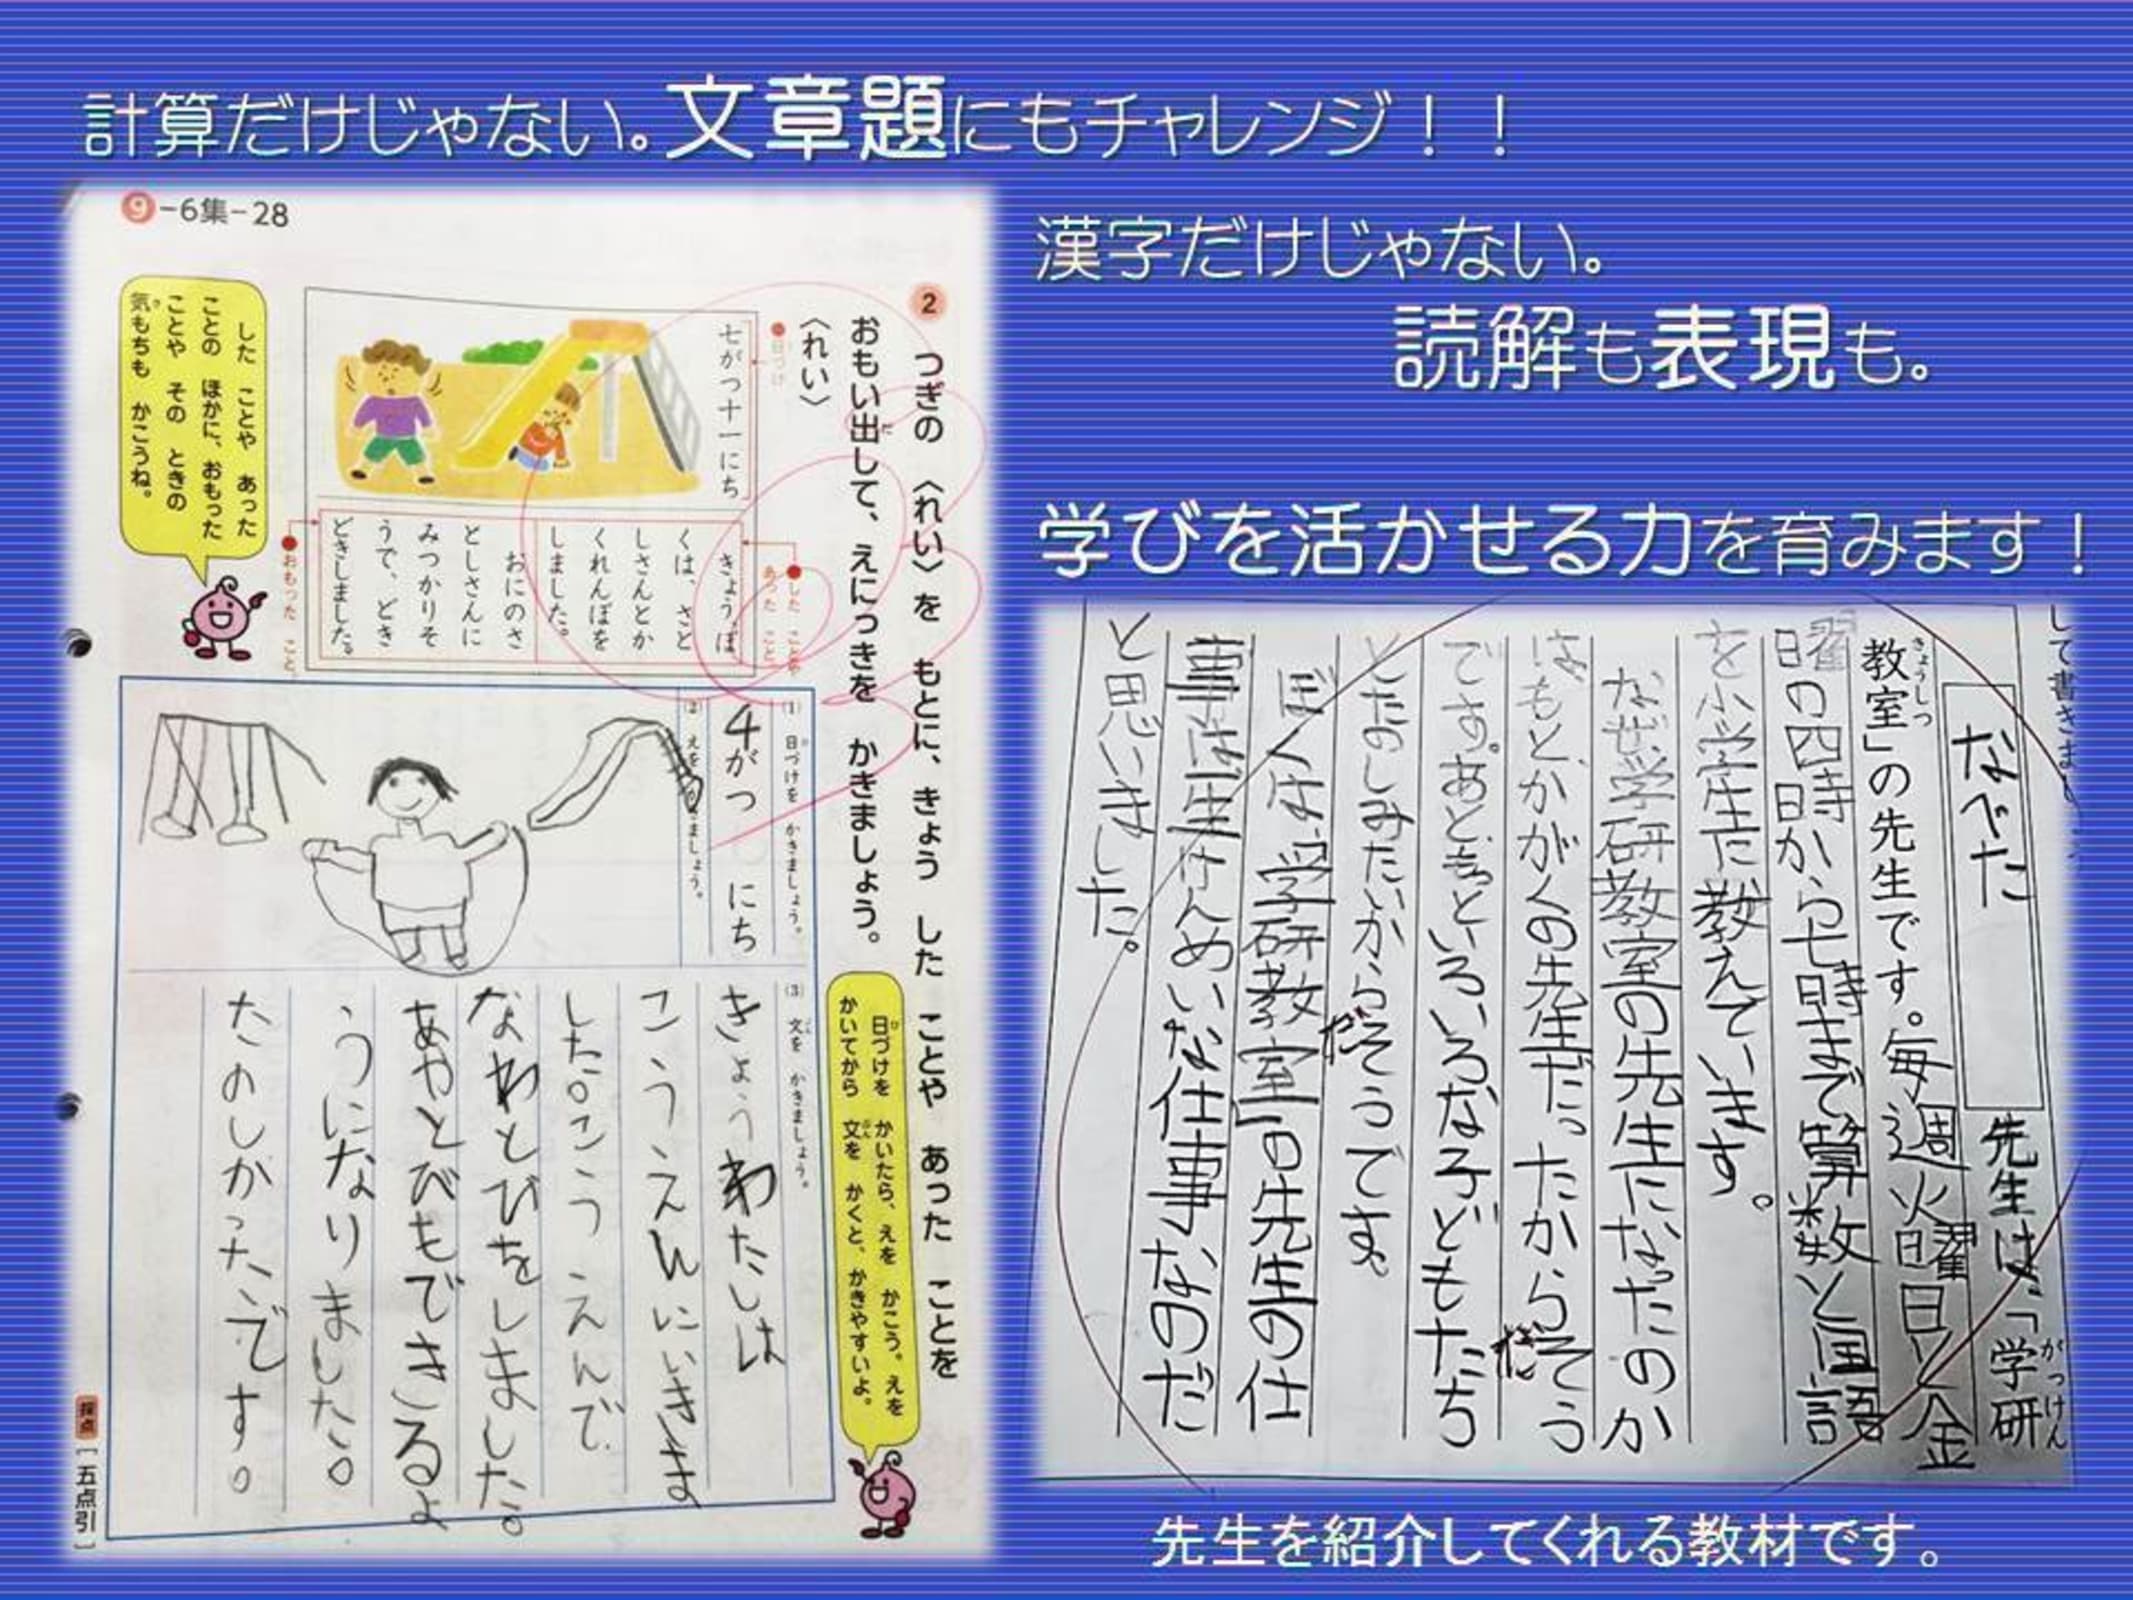 計算だけじゃない。文章題にもチャレンジ！！
漢字だけじゃない。
読解も表現も。
学びを活かせる力を育みます！
9-6集-28
2
つぎの 〈れい〉を もとに、きょう した ことや あった ことを
おもい出して、えにっきを かきましょう。
だ
〈れい〉
●日づけ
七がつ十一にち
●した ことや
あった こと
きょう、ぼ
くは、さと
しさんとか
くれんぼを
しました。
おにのさ
としさんに
みつかりそ
うで、どき
どきしました。
●おもった こと
した ことや あった
ことの ほかに、おもった
ことや その ときの
気もちも かこうね。
き
(1) 日づけを かきましょう。
4がつ にち
(2) えを かきましょう。
(3) 文を かきましょう。
きょうわたしは
こうえんにいきま
した。こうえんで
なわとびをしました。
あやとびもできるよ
うになりました。
たのしかったです。
日づけを かいたら、えを かこう。えを
かいてから 文を かくと、かきやすいよ。
採点
[五点引]
して書きま
なべた 先生は、「学研
がっけん
教室」の先生です。毎週火曜日と金
きょうしつ
曜日の四時から七時まで算数と国語
を小学生に教えています。
なぜ、学研教室の先生になったのか
はもとかがくの先生だったからだそう
です。あと、もっといろいろな子どもたち
とたのしみたいからだそうです。
ぼくは、学研教室の先生の仕
事は一生けんめいな仕事なのだ
と思いました。
先生を紹介してくれる教材です。